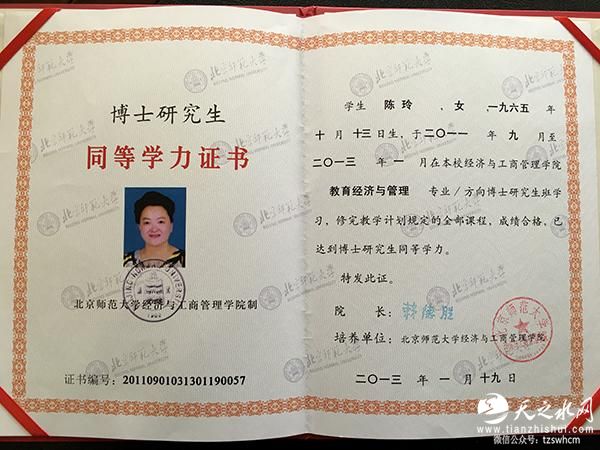 博士研究生
同等学力证书
北京师范大学经济与工商管理学院制
证书编号：20110901031301190057
学生 陈 玲 ，女 一九六五 年
十 月 十三 日生，于 二〇一一 年 九 月至
二〇一三 年 一 月在本校经济与工商管理学院
教育经济与管理 专业/方向博士研究生班学
习，修完教学计划规定的全部课程，成绩合格，已
达到博士研究生同等学力。
特发此证。
院 长：
培养单位：北京师范大学经济与工商管理学院
二〇一三 年 一 月 十九 日
天之水网
www.tianzhishui.com
微信公众号：tzswhcm